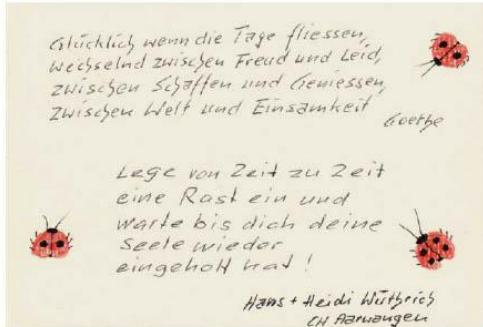 Glücklich wenn die Tage fliessen,
wechselnd zwischen Freud und Leid,
zwischen Schaffen und Geniessen,
zwischen Welt und Einsamkeit
Goethe
Lege von Zeit zu Zeit
eine Rast ein und
warte bis dich deine
Seele wieder
eingeholt hat !
Hans + Heidi Wüthrich
CH Aarwangen